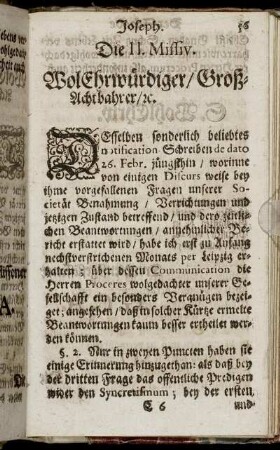 Joseph. 56
Die II. Missiv.
WolEhrwürdiger / Groß-
Achtbahrer / ꝛc.
DEsselben sonderlich beliebtes
notification-Schreiben de dato
26. Febr. jüngsthin / worinne
von einigen Discurs weise bey
ihme vorgefallenen Fragen unserer So-
cietät Benahmung / Verrichtungen und
jetzigen Zustand betreffend / und dero
Beantwortungen / annehmlicher Be-
richt erstattet wird / habe ich erst zu Anfang
nechstverstrichenen Monats per Leipzig er-
halten; über dessen Communication die
Herren Proceres wolgedachter unserer Ge-
sellschafft ein besonders Vergnügen bezei-
get; angesehen / daß in solcher Kürtze ermelte
Beantwortungen kaum besser ertheilet wer-
den können.
§. 2. Nur in zweyen Puncten haben sie
einige Erinnerung hinzugethan: als daß bey
der dritten Frage das offentliche Predigen
wider den Syncretismum; bey der ersten
E 6 und-